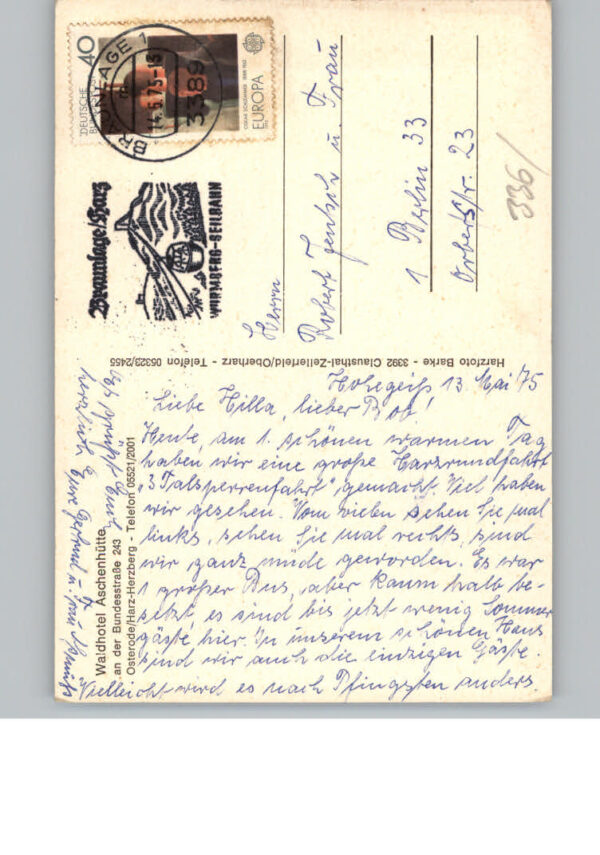 DEUTSCHE BUNDESPOST
40
OSKAR SCHLEMMER 1888-1943
EUROPA
BRAUNLAGE 1
14.5.75-15
3389
Braunlage/Harz
WURMBERG-SEILBAHN
Herrn
Robert Jentsch u. Frau
1 Berlin 33
Orberstr. 23
336/
Harzfoto Barke - 3392 Clausthal-Zellerfeld/Oberharz - Telefon 05323/2455
Hohegeiß 13 Mai 75
Liebe Hilla, lieber Bob!
Heute, am 1. schönen warmen Tag
haben wir eine große Harzrundfahrt
"3 Talsperrenfahrt" gemacht. Viel haben
wir gesehen. Vom vielen sehen Sie mal
links, sehen Sie mal rechts, sind
wir ganz müde geworden. Es war
1 großer Bus, aber kaum halb be-
setzt, es sind bis jetzt wenig Sommer
gäste hier. In unserem schönen Haus
sind wir auch die einzigen Gäste.
Vielleicht wird es nach Pfingsten anders.
Waldhotel Aschenhütte
an der Bundesstraße 243
Osterode/Harz-Herzberg - Telefon 05521/2001
Es grüßt Euch
herzlich Eure Gertrud u.